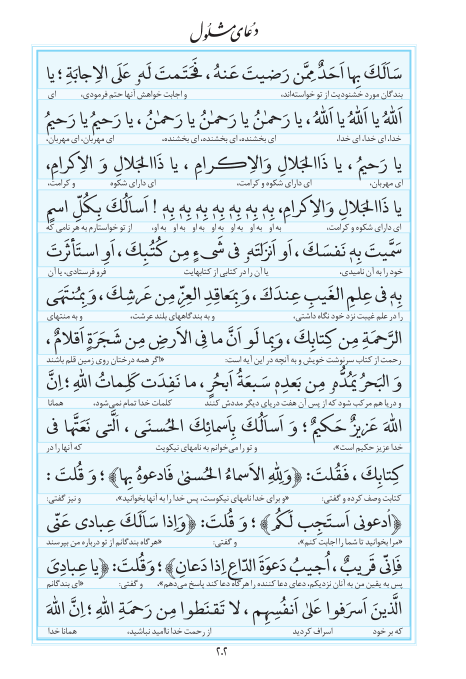 دعای مشلول
سَأَلَكَ بِها اَحَدٌ مِمَّن رَضیتَ عَنهُ، فَحَتَمتَ لَهُ عَلَی الاِجابَةِ؛ یا
بندگان مورد خشنودیت از تو خواسته‌اند، و اجابت خواهش آنها حتم فرمودی، ای
اَللهُ یا اَللهُ یا اَللهُ، یا رَحمٰنُ یا رَحمٰنُ یا رَحمٰنُ، یا رَحیمُ یا رَحیمُ
خدا، ای خدا، ای خدا، ای بخشنده، ای بخشنده، ای بخشنده، ای مهربان، ای مهربان،
یا رَحیمُ، یا ذَاالجَلالِ وَالاِكرامِ، یا ذَاالجَلالِ وَ الاِكرامِ،
ای مهربان، ای دارای شکوه و کرامت، ای دارای شکوه و کرامت،
یا ذَاالجَلالِ وَالاِكرامِ، بِهِ بِهِ بِهِ بِهِ بِهِ بِهِ بِهِ! اَسأَلُكَ بِكُلِّ اسمٍ
ای دارای شکوه و کرامت، به او به او به او به او به او به او به او، از تو خواستارم به هر نامی که
سَمَّیتَ بِهِ نَفسَكَ، اَو اَنزَلتَهُ فی شَیءٍ مِن كُتُبِكَ، اَوِ استَأثَرتَ
خود را به آن نامیدی، یا آن را در کتابی از کتابهایت فرو فرستادی، یا آن
بِهِ فی عِلمِ الغَیبِ عِندَكَ، وَبِمَعاقِدِ العِزِّ مِن عَرشِكَ، وَبِمُنتَهَی
را در علم غیبت نزد خود نگاه داشتی، و به بندگاههای بلند عرشت، و به منتهای
الرَّحمَةِ مِن كِتابِكَ، وَبِما لَو اَنَّ ما فِی الاَرضِ مِن شَجَرَةٍ اَقلامٌ،
رحمت از کتاب سرنوشت خویش و به آنچه در این آیه است: «اگر همه درختان روی زمین قلم باشند
وَ البَحرُ یَمُدُّهُ مِن بَعدِهِ سَبعَةُ اَبحُرٍ، ما نَفِدَت كَلِماتُ اللهِ؛ اِنَّ
و دریا هم مرکب شود که از پس آن هفت دریای دیگر مددش کنند کلمات خدا تمام نمی‌شود، همانا
اللهَ عَزیزٌ حَكیمٌ؛ وَ اَسأَلُكَ بِاَسمائِكَ الحُسنَی، اَلَّتی نَعَتَّها فی
خدا عزیز حکیم است»، و تو را می‌خوانم به نامهای نیکویت که آنها را در
كِتابِكَ، فَقُلتَ: ﴿وَلِلّٰهِ الاَسماءُ الحُسنیٰ فَادعوهُ بِها﴾؛ وَ قُلتَ:
کتابت وصف کرده و گفتی: «و برای خدا نامهای نیکوست، پس خدا را به آنها بخوانید»، و نیز گفتی:
﴿اُدعونی اَستَجِب لَكُم﴾؛ وَ قُلتَ: ﴿وَاِذا سَأَلَكَ عِبادی عَنّی
«مرا بخوانید تا شما را اجابت کنم»، و گفتی: «هرگاه بندگانم از تو درباره من بپرسند
فَاِنّی قَریبٌ، اُجیبُ دَعوَةَ الدّاعِ اِذا دَعانِ﴾؛ وَقُلتَ: ﴿یا عِبادِیَ
پس به یقین من به آنان نزدیکم، دعای دعا کننده را هرگاه دعا کند پاسخ می‌دهم»، و گفتی: «ای بندگانم
الَّذینَ اَسرَفوا عَلیٰ اَنفُسِهِم، لا تَقنَطوا مِن رَحمَةِ اللهِ؛ اِنَّ اللهَ
که بر خود اسراف کردید از رحمت خدا ناامید نباشید، همانا خدا
۲۰۲